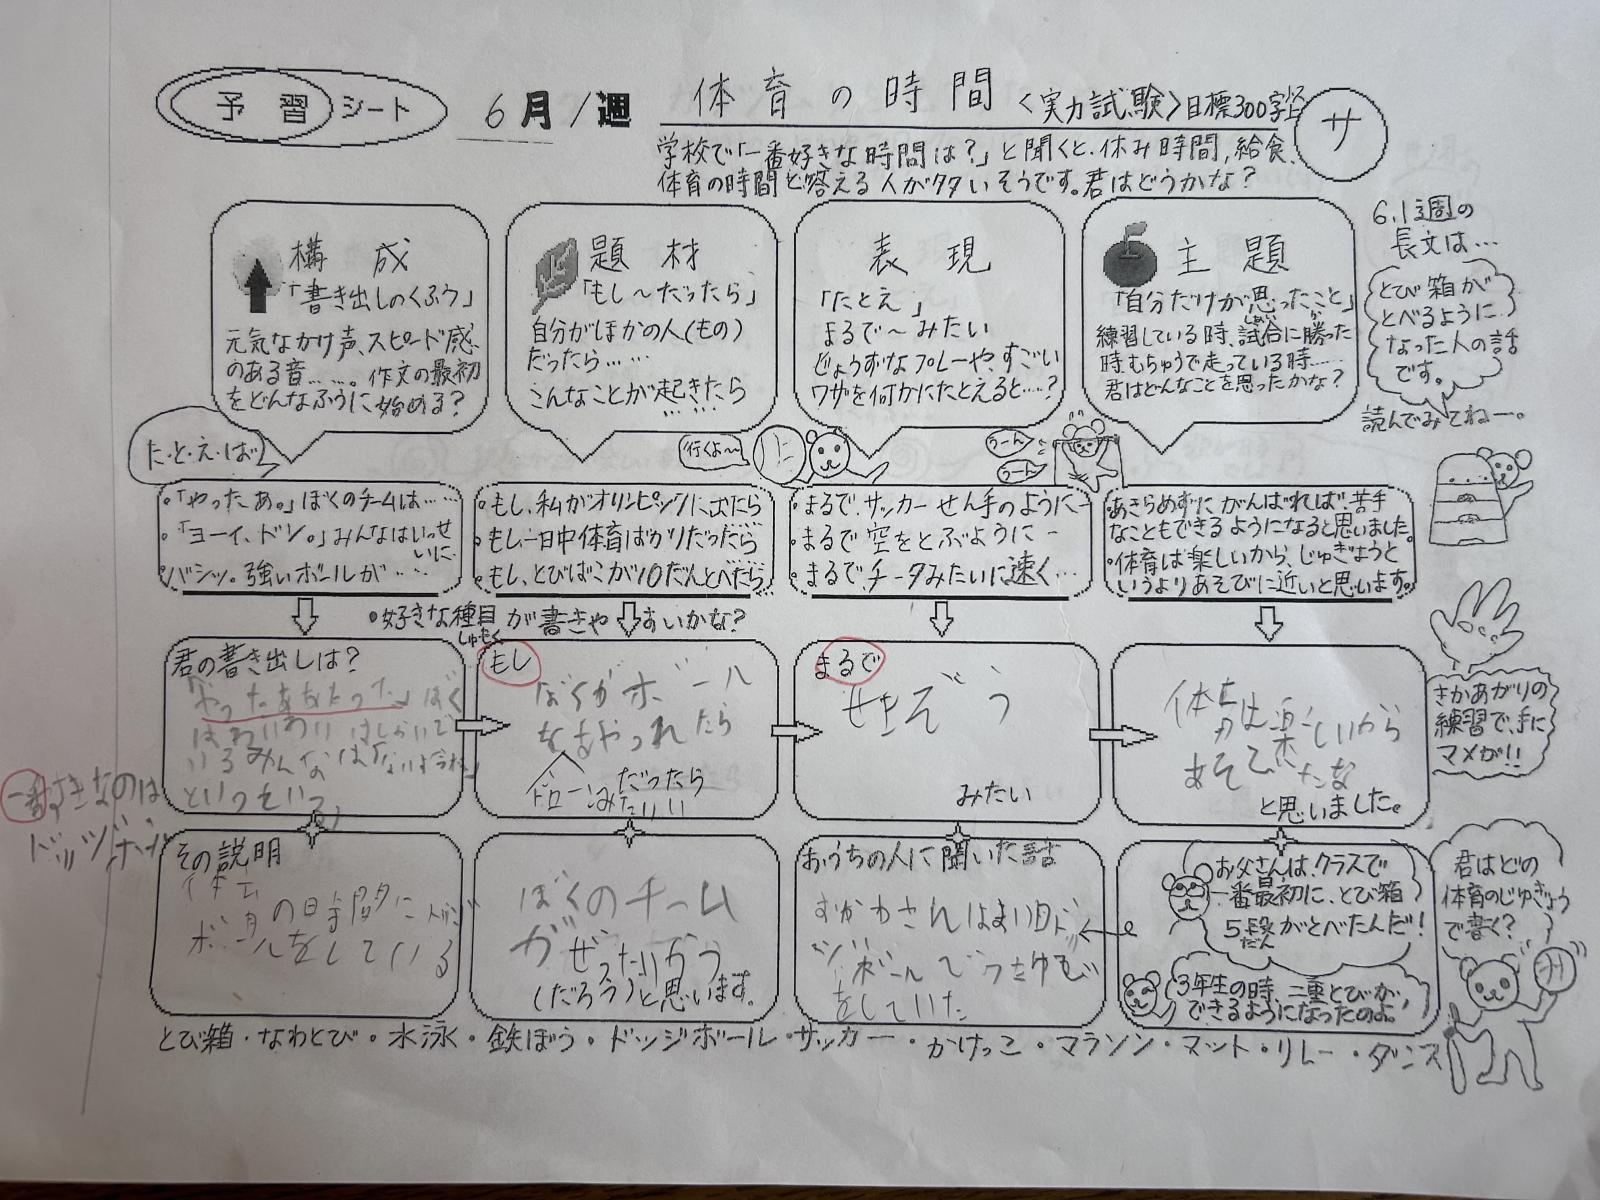 予習シート
6月1週
体育の時間
〈実力試験〉目標300字以上
サ
学校で「一番好きな時間は?」と聞くと、休み時間、給食、
体育の時間と答える人が多いそうです。君はどうかな?
構成
「書き出しのくふう」
元気なかけ声、スピード感
のある音……。作文の最初
をどんなふうに始める?
題材
「もし~だったら」
自分がほかの人(もの)
だったら……
こんなことが起きたら
……
表現
「たとえ」
まるで~みたい
じょうずなプレーや、すごい
ワザを何かにたとえると…?
主題
「自分だけが思ったこと」
練習している時、試合に勝った
時、むちゅうで走っている時……
君はどんなことを思ったかな?
6.1週の
長文は…
とび箱が
とべるように
なった人の話
です。
読んでみてねー。
た・と・え・ば
・「やったあ。」ぼくのチームは……
・「ヨーイ、ドン。」みんなはいっせ
いに…
・バシッ。強いボールが……
行くよ~
・もし、私がオリンピックに出たら
・もし一日中体育ばかりだったら
・もし、とびばこが10だんとべたら
うーん
うーん
・まるで、サッカーせん手のように―
・まるで空をとぶように―
・まるで、チータみたいに速く…
・あきらめずにがんばれば、苦手
なこともできるようになると思いました。
・体育は楽しいから、じゅぎょうと
いうよりあそびに近いと思います。
・好きな種目が書きやすいかな?
しゅもく
君の書き出しは?
ぼく
みんなは
といっている
一番すきなのは
ドッヂボール
もし
ぼくがボール
なげやつれたら
ドローンみたいい
だったら
まるで
せんぞう
みたい
体育は楽しいから
あそびたな
と思いました。
さかあがりの
練習で、手に
マメが!!
その説明
体育の時間にドッジ
ボールをしている
ぼくのチーム
がぜったいかつ
(だろう)と思います。
おうちの人に聞いた話
おかあさんはまい日ド
ッジボール
をしていた
お父さんは、クラスで
一番最初に、とび箱
5段がとべたんだ!
だん
3年生の時、二重とびが
できるようになったのよ。
君はどの
体育のじゅぎょう
で書く?
とび箱・なわとび・水泳・鉄ぼう・ドッジボール・サッカー・かけっこ・マラソン・マット・リレー・ダンス